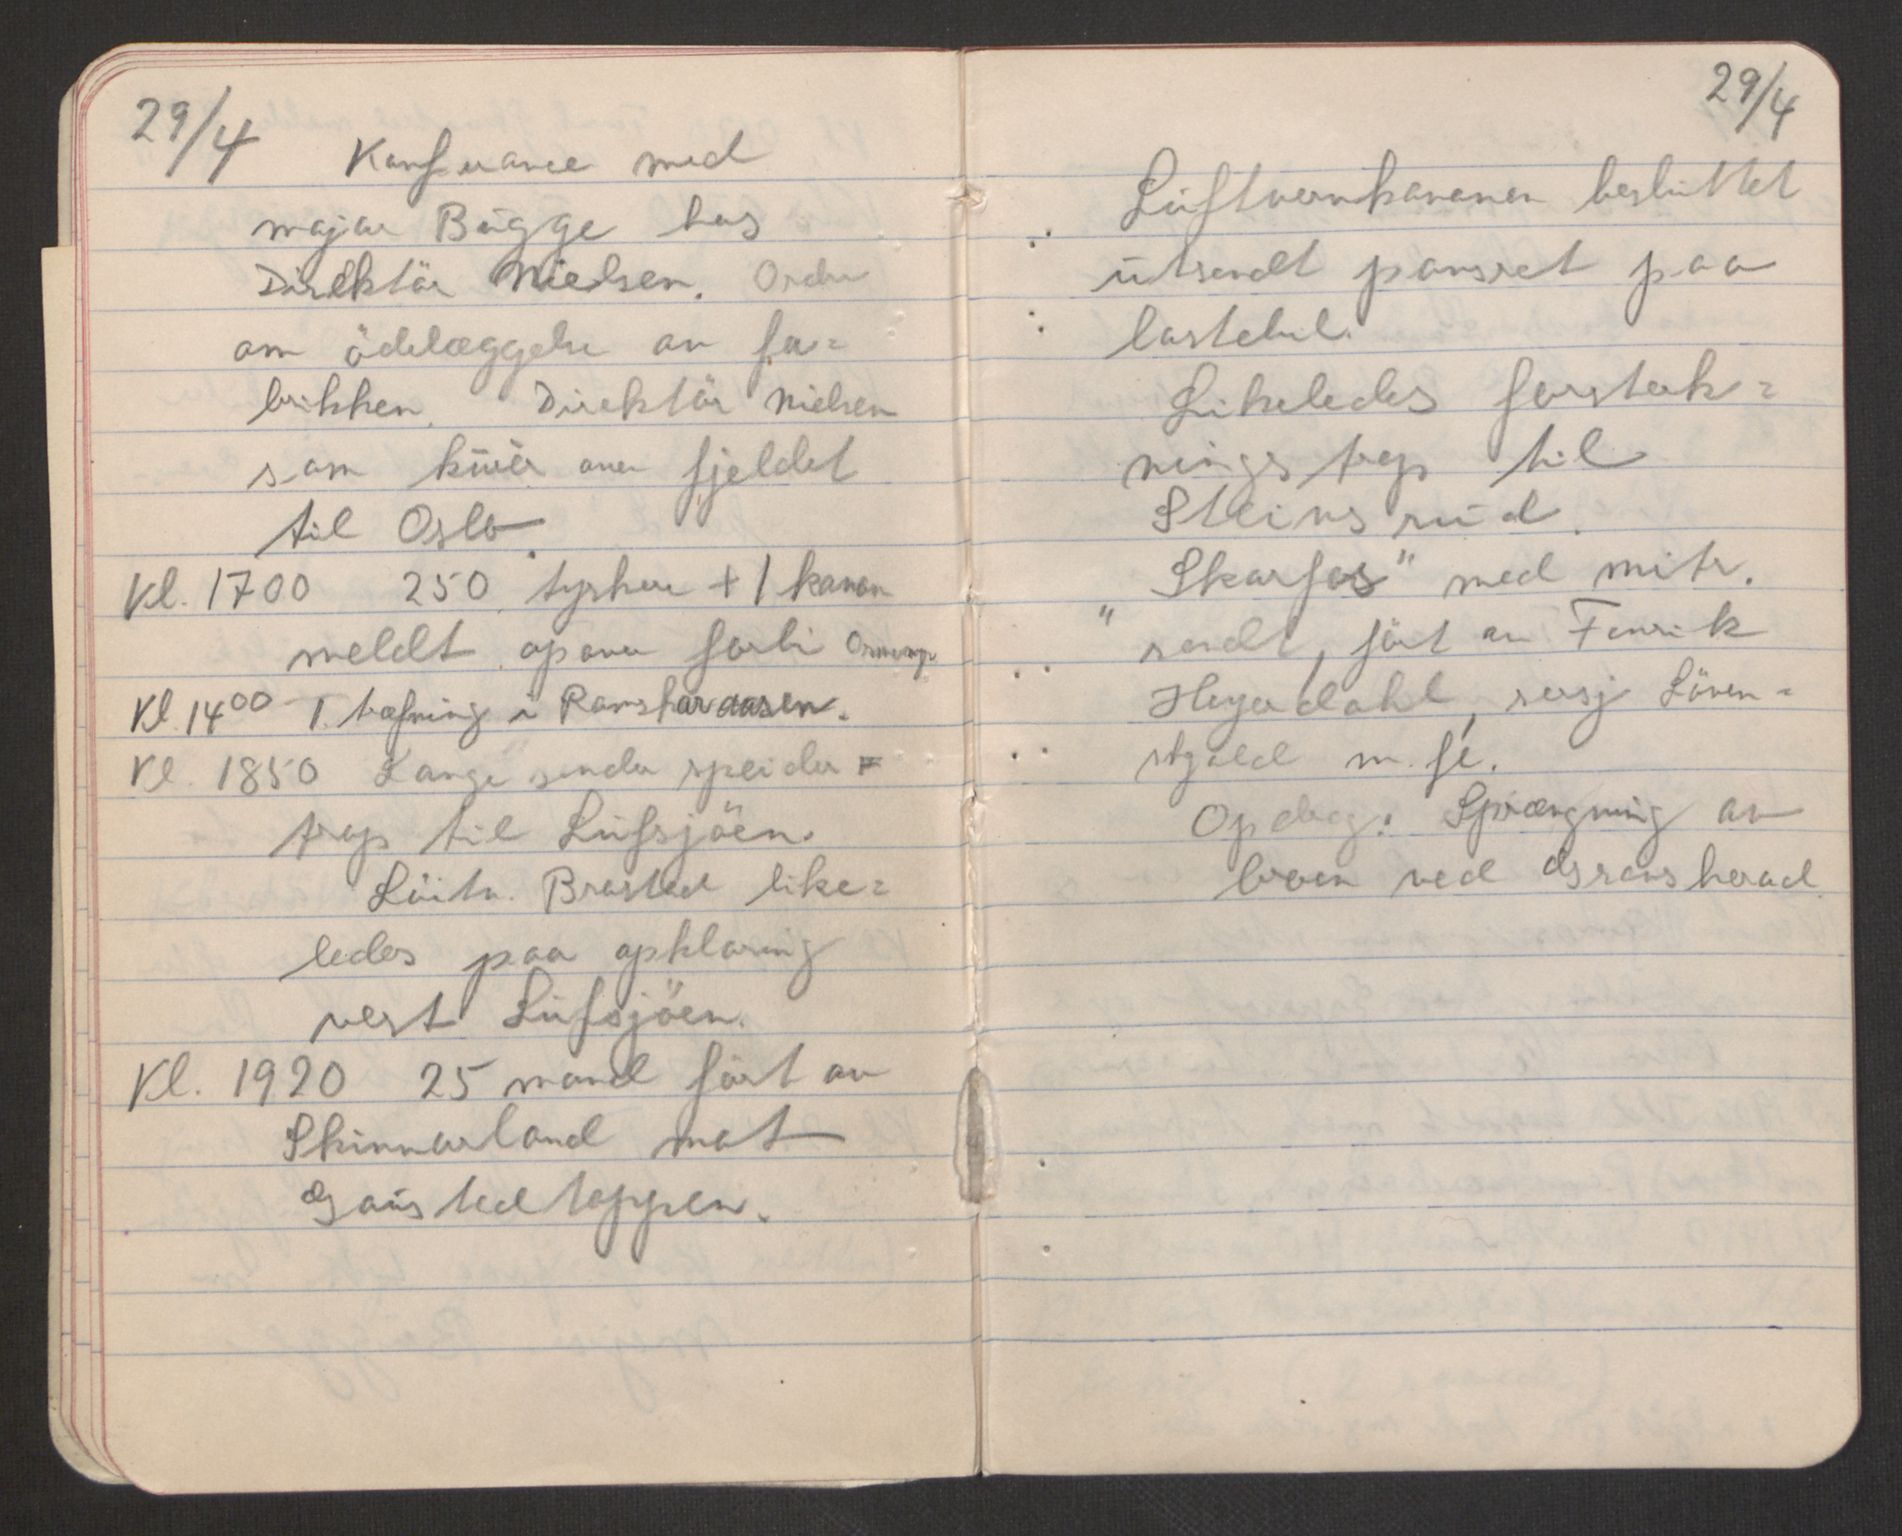 29/4
Konferance med
major Bugge hos
Direktör Nielsen. Ordre
om ödelæggelse av fa=
brikken. Direktör Nielsen
som kurér over fjeldet
til Oslo
Kl. 1700 250 tyskere + 1 kanon
meldt opover forbi
Kl. 1400 1. træfning i
Kl. 1850 Lange sender speider=
trop til Lufsjöen.
Löitn. Brasted like=
ledes paa opklaring
vest Lufsjöen.
Kl. 1920 25 mand fört av
Skinnarland mot
Gaustedtoppen.
29/4
Luftvernkanonen besluttet
utsendt panseret paa
lastebil.
Likeledes forsterk=
ningstrop til
Steinsrud.
"Skarfos" med mitr.
sendt, fört av Fenrik
Heyerdahl, sersj Löven=
skjold m. fl.
Opdrag: Sprængning av
broen ved Gransherad.